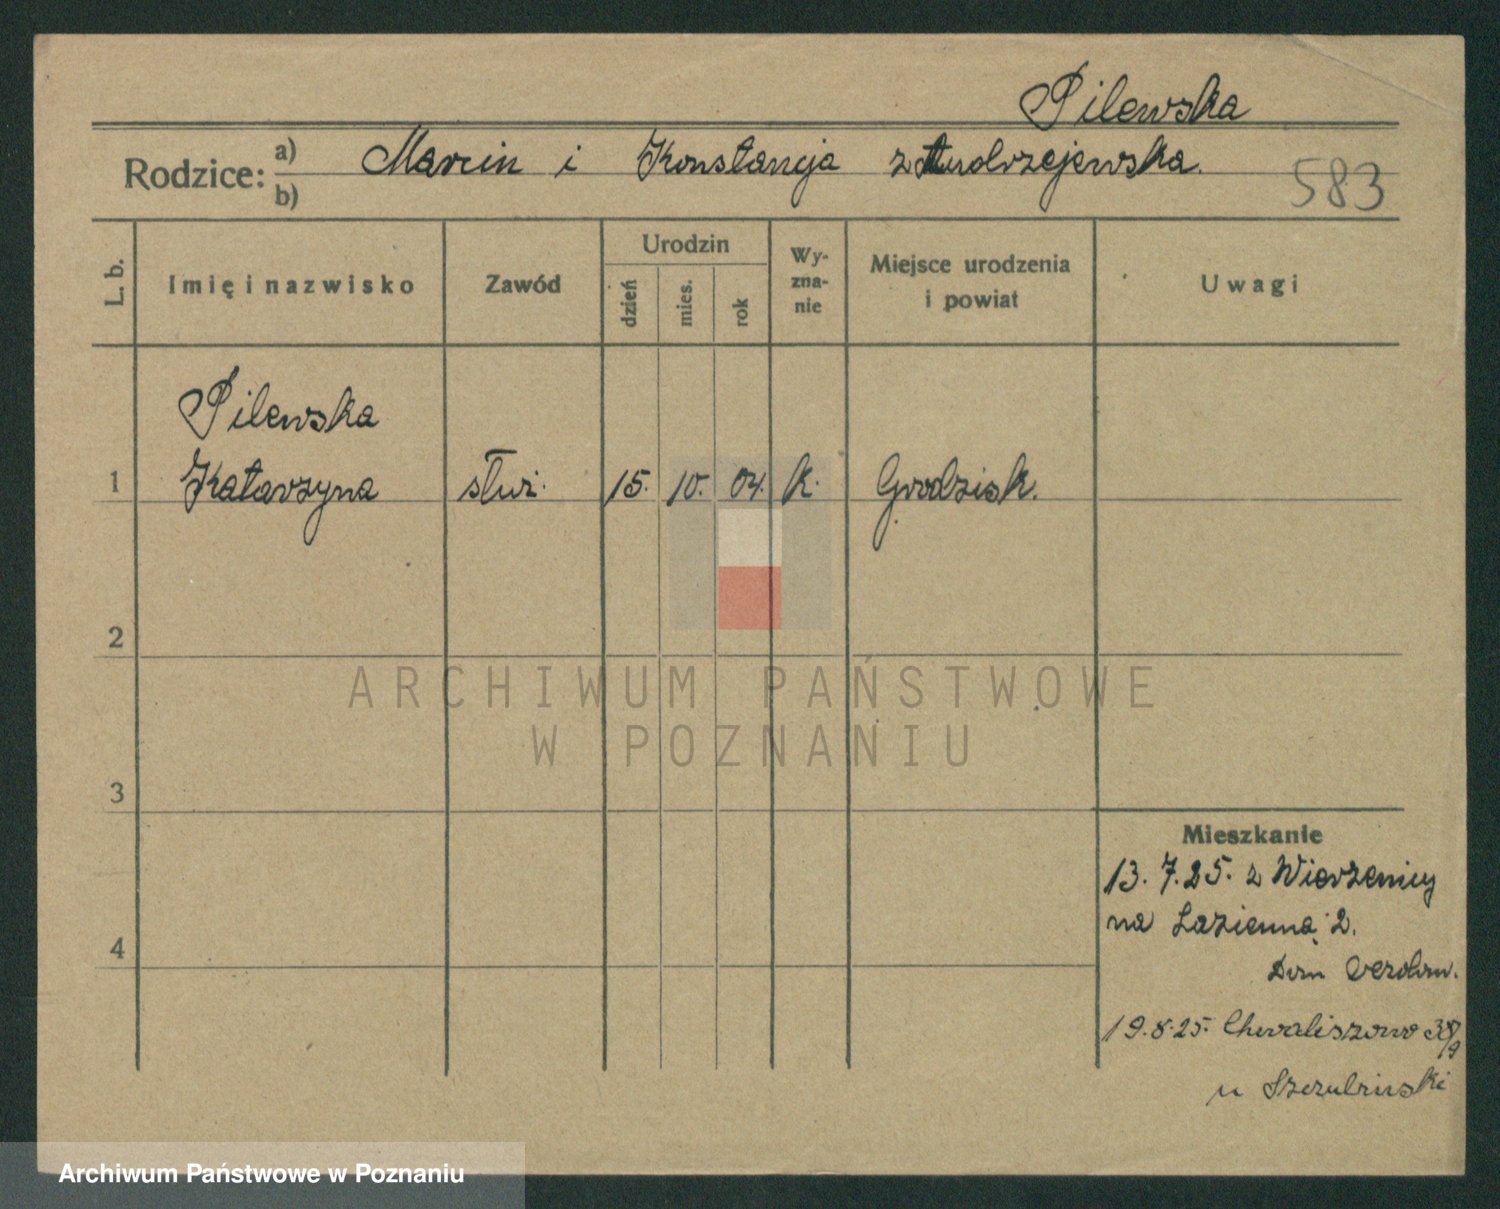 Pilewska
Rodzice: a) b) Marcin i Konstancja z Andrzejewska.
583
L. b. Imię i nazwisko Zawód Urodzin dzień mies. rok Wyznanie Miejsce urodzenia i powiat Uwagi
Pilewska
1 Katarzyna służ. 15. 10. 04. k. Grodzisk.
2
ARCHIWUM PAŃSTWOWE
W POZNANIU
3
Mieszkanie
13. 7. 25. z Wierzenicy
na Łazienną 2.
4
Dom
19. 8. 25. Chwaliszewo
u
Archiwum Państwowe w Poznaniu